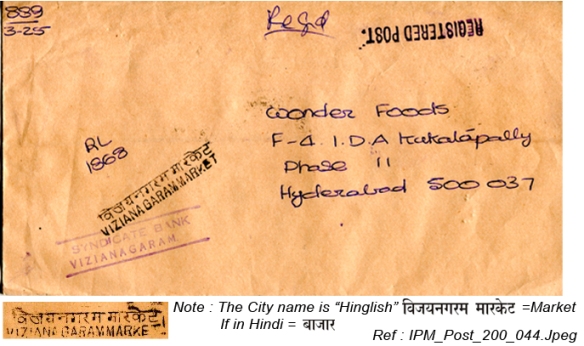 889
3-25
Regd
REGISTERED POST.
Wonder Foods
F-4. I.D.A Kukatapally
Phase II
Hyderabad 500 037
RL
1868
विजयनगरम मारकेट
VIZIANAGARAM MARKET
SYNDICATE BANK
VIZIANAGARAM
विजयनगरम मारकेट
VIZIANAGARAM MARKET
Note : The City name is “Hinglish” विजयनगरम मारकेट =Market
If in Hindi = बाजार
Ref : IPM_Post_200_044.Jpeg